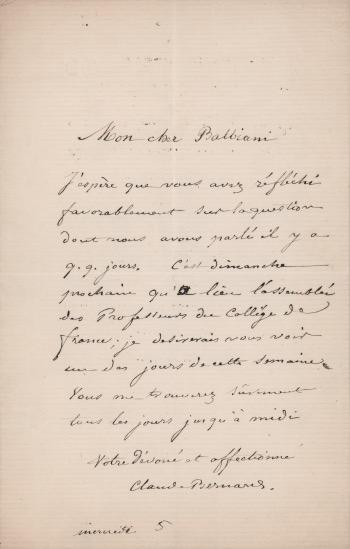 Mon cher Balbiani
J'espère que vous avez réfléchi
favorablement sur la question
dont nous avons parlé il y a
q.q. jours. C'est dimanche
prochain qu'a lieu l'assemblée
des Professeurs du Collège de
france; je desirerais vous voir
un des jours de cette semaine.
Vous me trouverez sûrement
tous les jours jusqu'à midi
Votre dévoué et affectionné
Claude Bernard.
mercredi 5